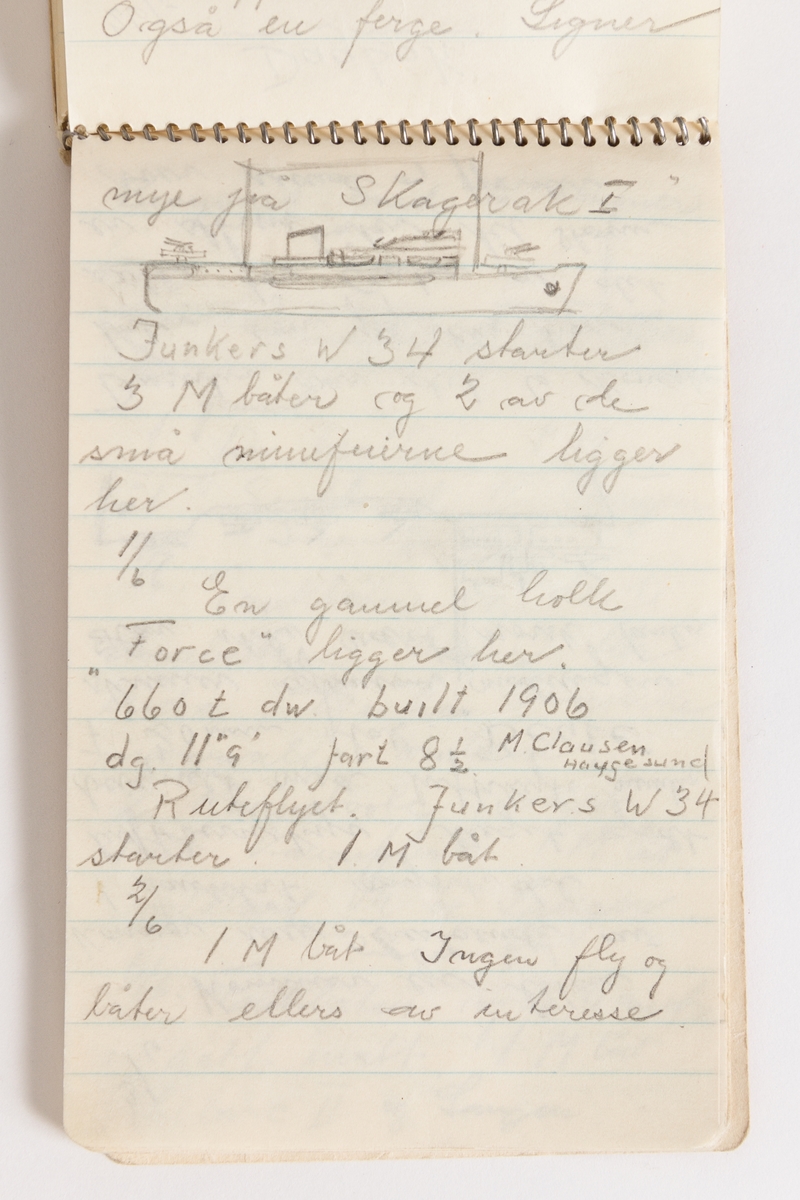 Også en ferge. Ligner
mye på Skagerak I"
Junkers W 34 starter
3 M båter og 2 av de
små minefeierne ligger
her.
1/6
En gammel holk
„Force" ligger her.
660 t dw built 1906
dg. 11"9' fart 8 1/2 M. Clausen
Haugesund
Ruteflyet. Junkers W 34
starter. 1 M båt
2/6
1 M båt Ingen fly og
båter ellers av interesse